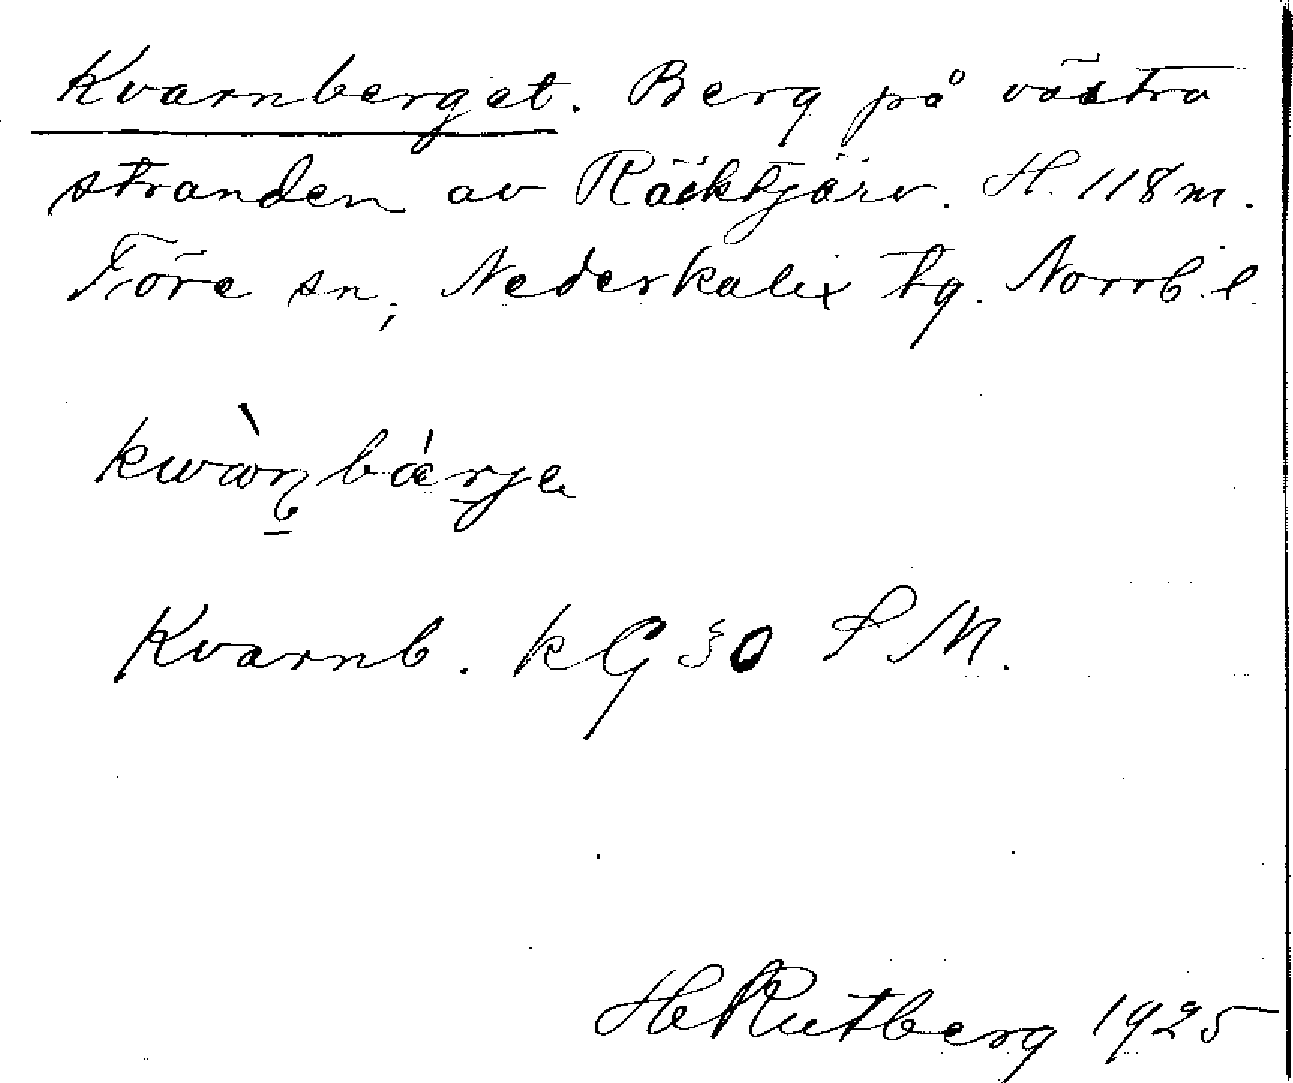 Kvarnberget. Berg på västra
stranden av Räcktjärv. H. 118 m.
Töre sn, Nederkalix tg. Norrb. l.
kwàṇbǽrja
Kvarnb. kG 30 S M.
H Rutberg 1925